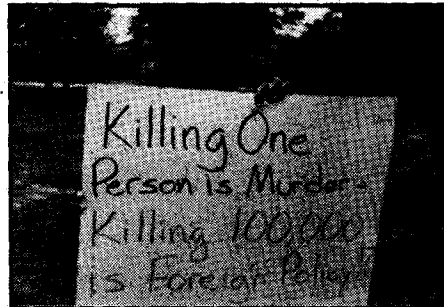 Killing One
Person is Murder.
Killing 100,000
is Foreign Policy!